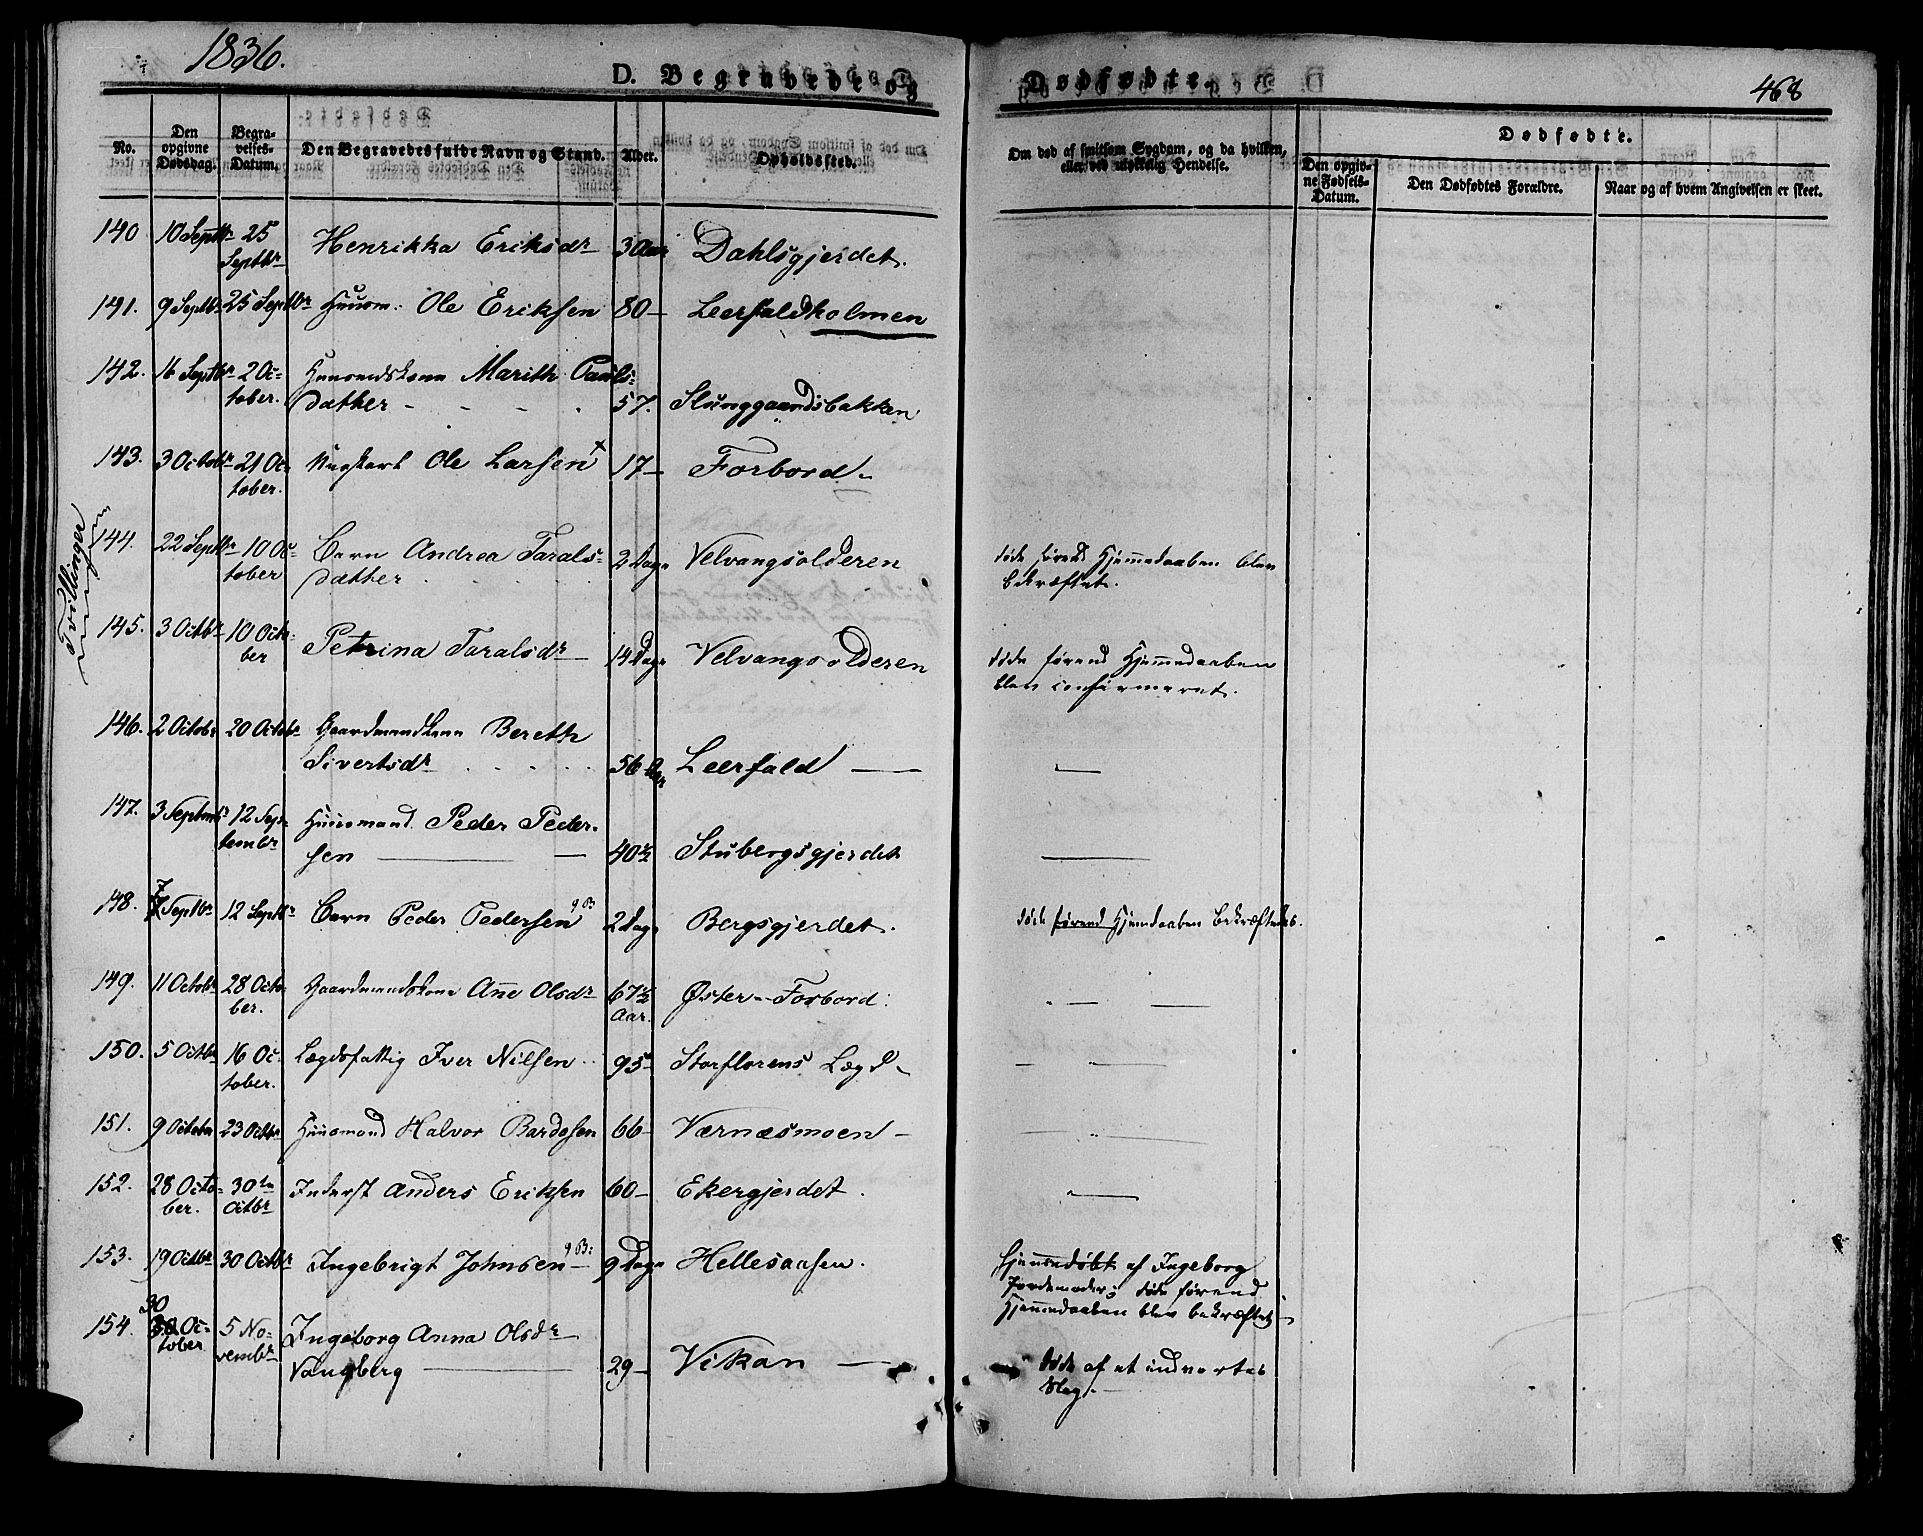 1836.
D. Begravede og Dødfødte.
468
No.
Den opgivne Dødsdag.
Begravelses-Datum.
Den Begravedes fulde Navn og Stand.
Alder.
Opholdssted.
Om død af smitsom Sygdom, og da hvilken, eller ved ulykkelig Hendelse.
Dødfødte.
Den opgivne Fødsels-Datum.
Den Dødfødtes Forældre.
Naar og af hvem Angivelsen er skeet.
140 10 Septbr 25 Septbr Henrikka Eriksdr 3 Aar Dahlsgjerdet.
141. 9 Septbr 25 Septbr Huusm: Ole Eriksen 80 – Leerfaldholmen
142. 16 Septbr 2 Oc-
tober. Huusmdskone Marith Paals-
dather - - - . 57. Slunggaardsbakken
143. 3 Octobr 21 Oc-
tober. Ole Larsen x 17 – Forbord
Tvillinger
144. 22 Septbr 10 Oc-
tober Barn Andrea Tarals-
dather 2 Dage Velvangsolderen døde førend Hjemmedaaben blev
bekræftet.
145. 3 Octbr 10 Octo-
ber Petrina Taralsdr 14 Dage Velvangsolderen døde førend Hjemmedaaben
blev confirmeret.
146. 2 Octobr 20 Octobr Gaardmandskone Bereth
Sivertsdr 56 Aar Leerfald —
147. 3 Septembr 12 Sep-
tembr Huusmand Peder Peder-
sen — 40 ½ Stubergsgjerdet —
148. 7 Septbr 12 Septbr Barn Peder Pedersen 2 Dage Bergsgjerdet. døde førend Hjemdaaben bekræftedes.
149. 11 Octobr 28 Octo-
ber. Gaardmandskone Ane Olsdr 67 ½
Aar. Øster-Forbord:
150. 5 Octbr 16 Oc-
tober. Lægdsfattig Iver Nilsen 95 – Storflorens Lægd
151. 9 October 23 Octbr Huusmand Halvor Bardosen 66 – Værnæsmoen –
152. 28 Octo-
ber. 30te
Octbr Inderst Anders Eriksen 60 – Ekergjerdet.
153. 19 Octbr 30 Octbr Ingebrigt Johnsen 9 Dage Hellesaasen. Hjemmedøbt af Ingeborg
Jordemoder; døde førend
Hjemmedaaben blev bekræftet
154. 30 Oc-
tober 5 No-
vembr Ingeborg Anna Olsdr
Vangberg — 29 – Vikan — døde af et indvortes
Slag.